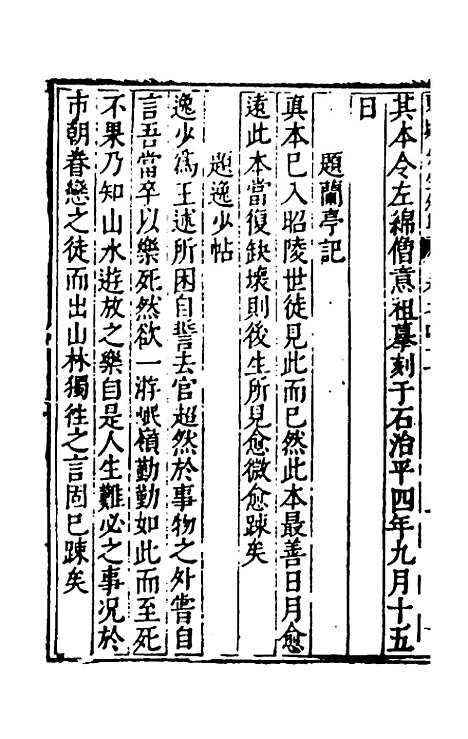 其本令左綿僧意祖摹刻于石治平四年九月十五
日
題蘭亭記
真本已入昭陵世徒見此而已然此本最善日月愈
遠此本當復缺壞則後生所見愈微愈踈矣
題逸少帖
逸少爲王述所困自誓去官超然於事物之外甞自
言吾當卒以樂死然欲一游岷嶺勤勤如此而至死
不果乃知山水遊放之樂自是人生難必之事况於
市朝眷戀之徒而出山林獨徃之言固已踈矣